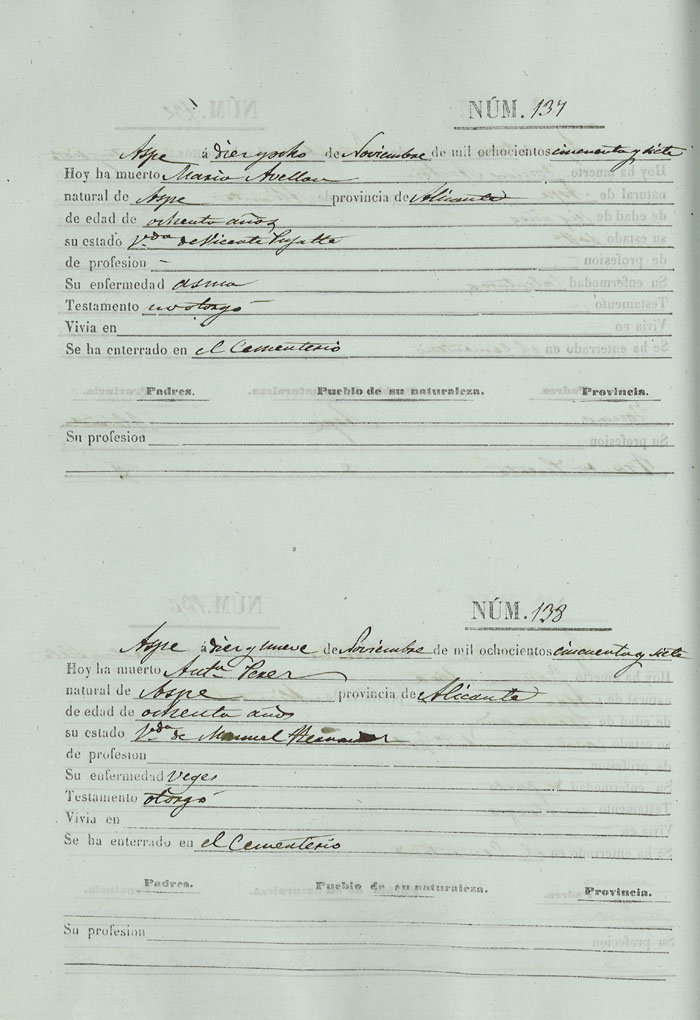 NÚM. 137
Aspe á diez y ocho de Noviembre de mil ochocientos cincuenta y siete
Hoy ha muerto Maria Avellan
natural de Aspe provincia de Alicante
de edad de ochenta años
su estado V.da de Vicente Pujalte
de profesion –
Su enfermedad asma
Testamento no otorgó
Vivia en
Se ha enterrado en el Cementerio
Padres. Pueblo de su naturaleza. Provincia.
Su profesion
NÚM. 138
Aspe á diez y nueve de Noviembre de mil ochocientos cincuenta y siete
Hoy ha muerto Ant.a Perez
natural de Aspe provincia de Alicante
de edad de ochenta años
su estado V.da de Manuel
de profesion
Su enfermedad vegez
Testamento otorgó
Vivia en
Se ha enterrado en el Cementerio
Padres. Pueblo de su naturaleza. Provincia.
Su profesion